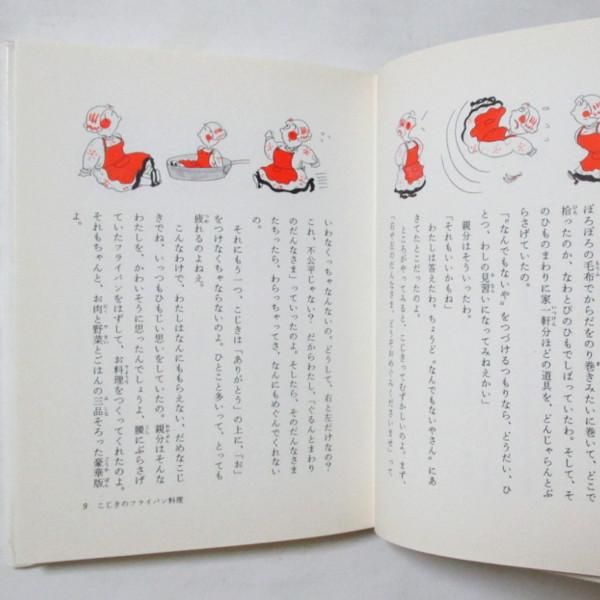 ぼろぼろの毛布でからだをのり巻きみたいに巻いて、どこで
拾ったのか、なわとびのひもでしばっていたわ。そして、そ
のひものまわりに家一軒分ほどの道具を、どんじゃらんとぶ
らさげていたの。
「〝なんでもないや〟をつづけるつもりなら、どうだい、ひ
とつ、わしの見習いになってみねえかい」
親分はそういったわ。
「それもいいかもね」
わたしは答えたわ。ちょうど〝なんでもないやさん〟に
きてたとこだったのよ。
ところがやってみると、こじきってむずかしいのよ。まず、
「右や左のだんなさま、どうかおめぐみくださいませ」って
いわなくっちゃなんないの。どうして、右と左だけなの?
これ、不公平じゃない? だからわたし、「ぐるんとまわり
のだんなさま」っていったのよ。そしたら、そのだんなさま
たちったら、わらっちゃってさ、なんにもめぐんでくれない
の。
それにもう一つ、こじきは「ありがとう」の上に、「お」
をつけなくちゃならないのよ。ひとこと多いって、とっても
疲れるのよねえ。
こんなわけで、わたしはなんにももらえない、だめなこじ
きでね、いっつもひもじい思いをしていたの。親分はそんな
わたしを、かわいそうに思ったんでしょうよ、腰にぶらさげ
ていたフライパンをはずして、お料理をつくってくれたのよ。
それもちゃんと、お肉と野菜とごはんの三品そろった豪華版
よ。
9 こじきのフライパン料理